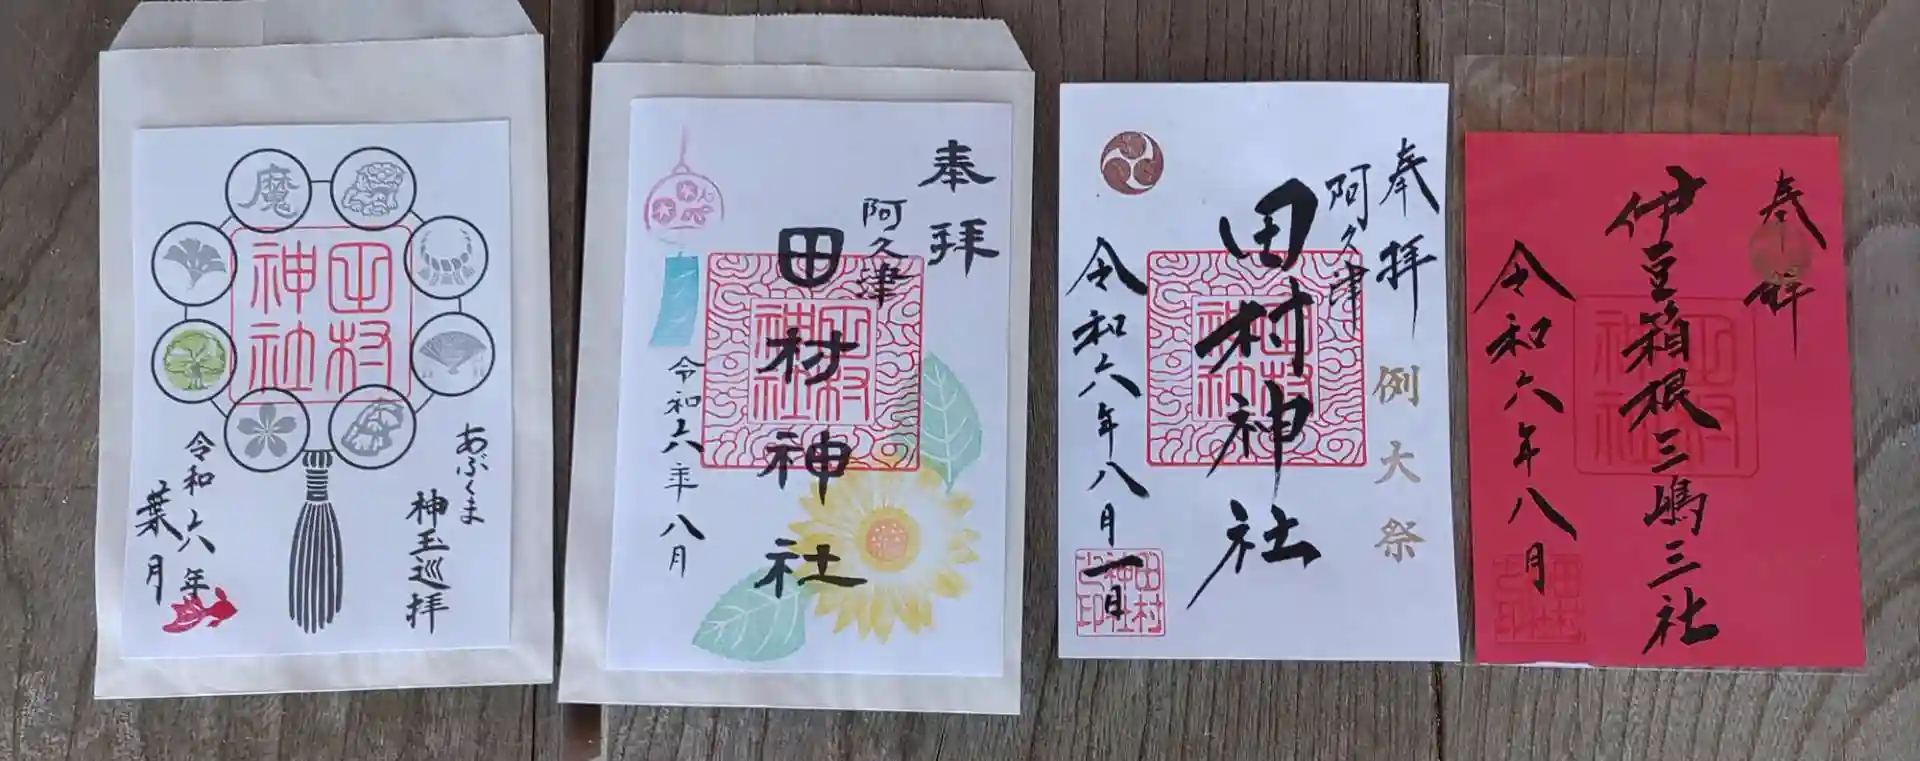 魔
田村
神社
あぶくま
神玉巡拝
令和六年
葉月
奉拝
阿久津
田村神社
田村
神社
令和六年八月
奉拝
阿久津
例大祭
田村神社
田村
神社
令和六年八月一日
田村
神社
之印
奉拝
伊豆箱根三嶋三社
田村
神社
令和六年八月
田村
神社
之印